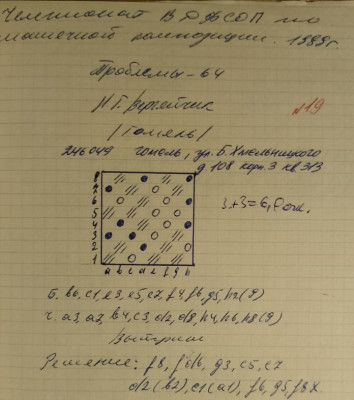 Чемпионат ВДФСОП по
шашечной композиции. 1989г.
Проблемы-64
Н.Г. Вергейчик
№19
/Гомель/
246049 гомель, ул. Б. Хмельницкого
д 108 корп. 3 кв 313
8
7
6
5
4
3
2
1
a b c d e f g h
3+3=6,0 очк.
Б. b6, c1, e3, e5, e7, f4, f6, g5, h2 (9)
Ч. a3, a7, b4, c3, d2, d8, h4, h6, h8 (9)
Выигрыш
Решение: f8, d6, g3, c5, e7
d2 (b2), c1 (a1), f6, g5, f8X